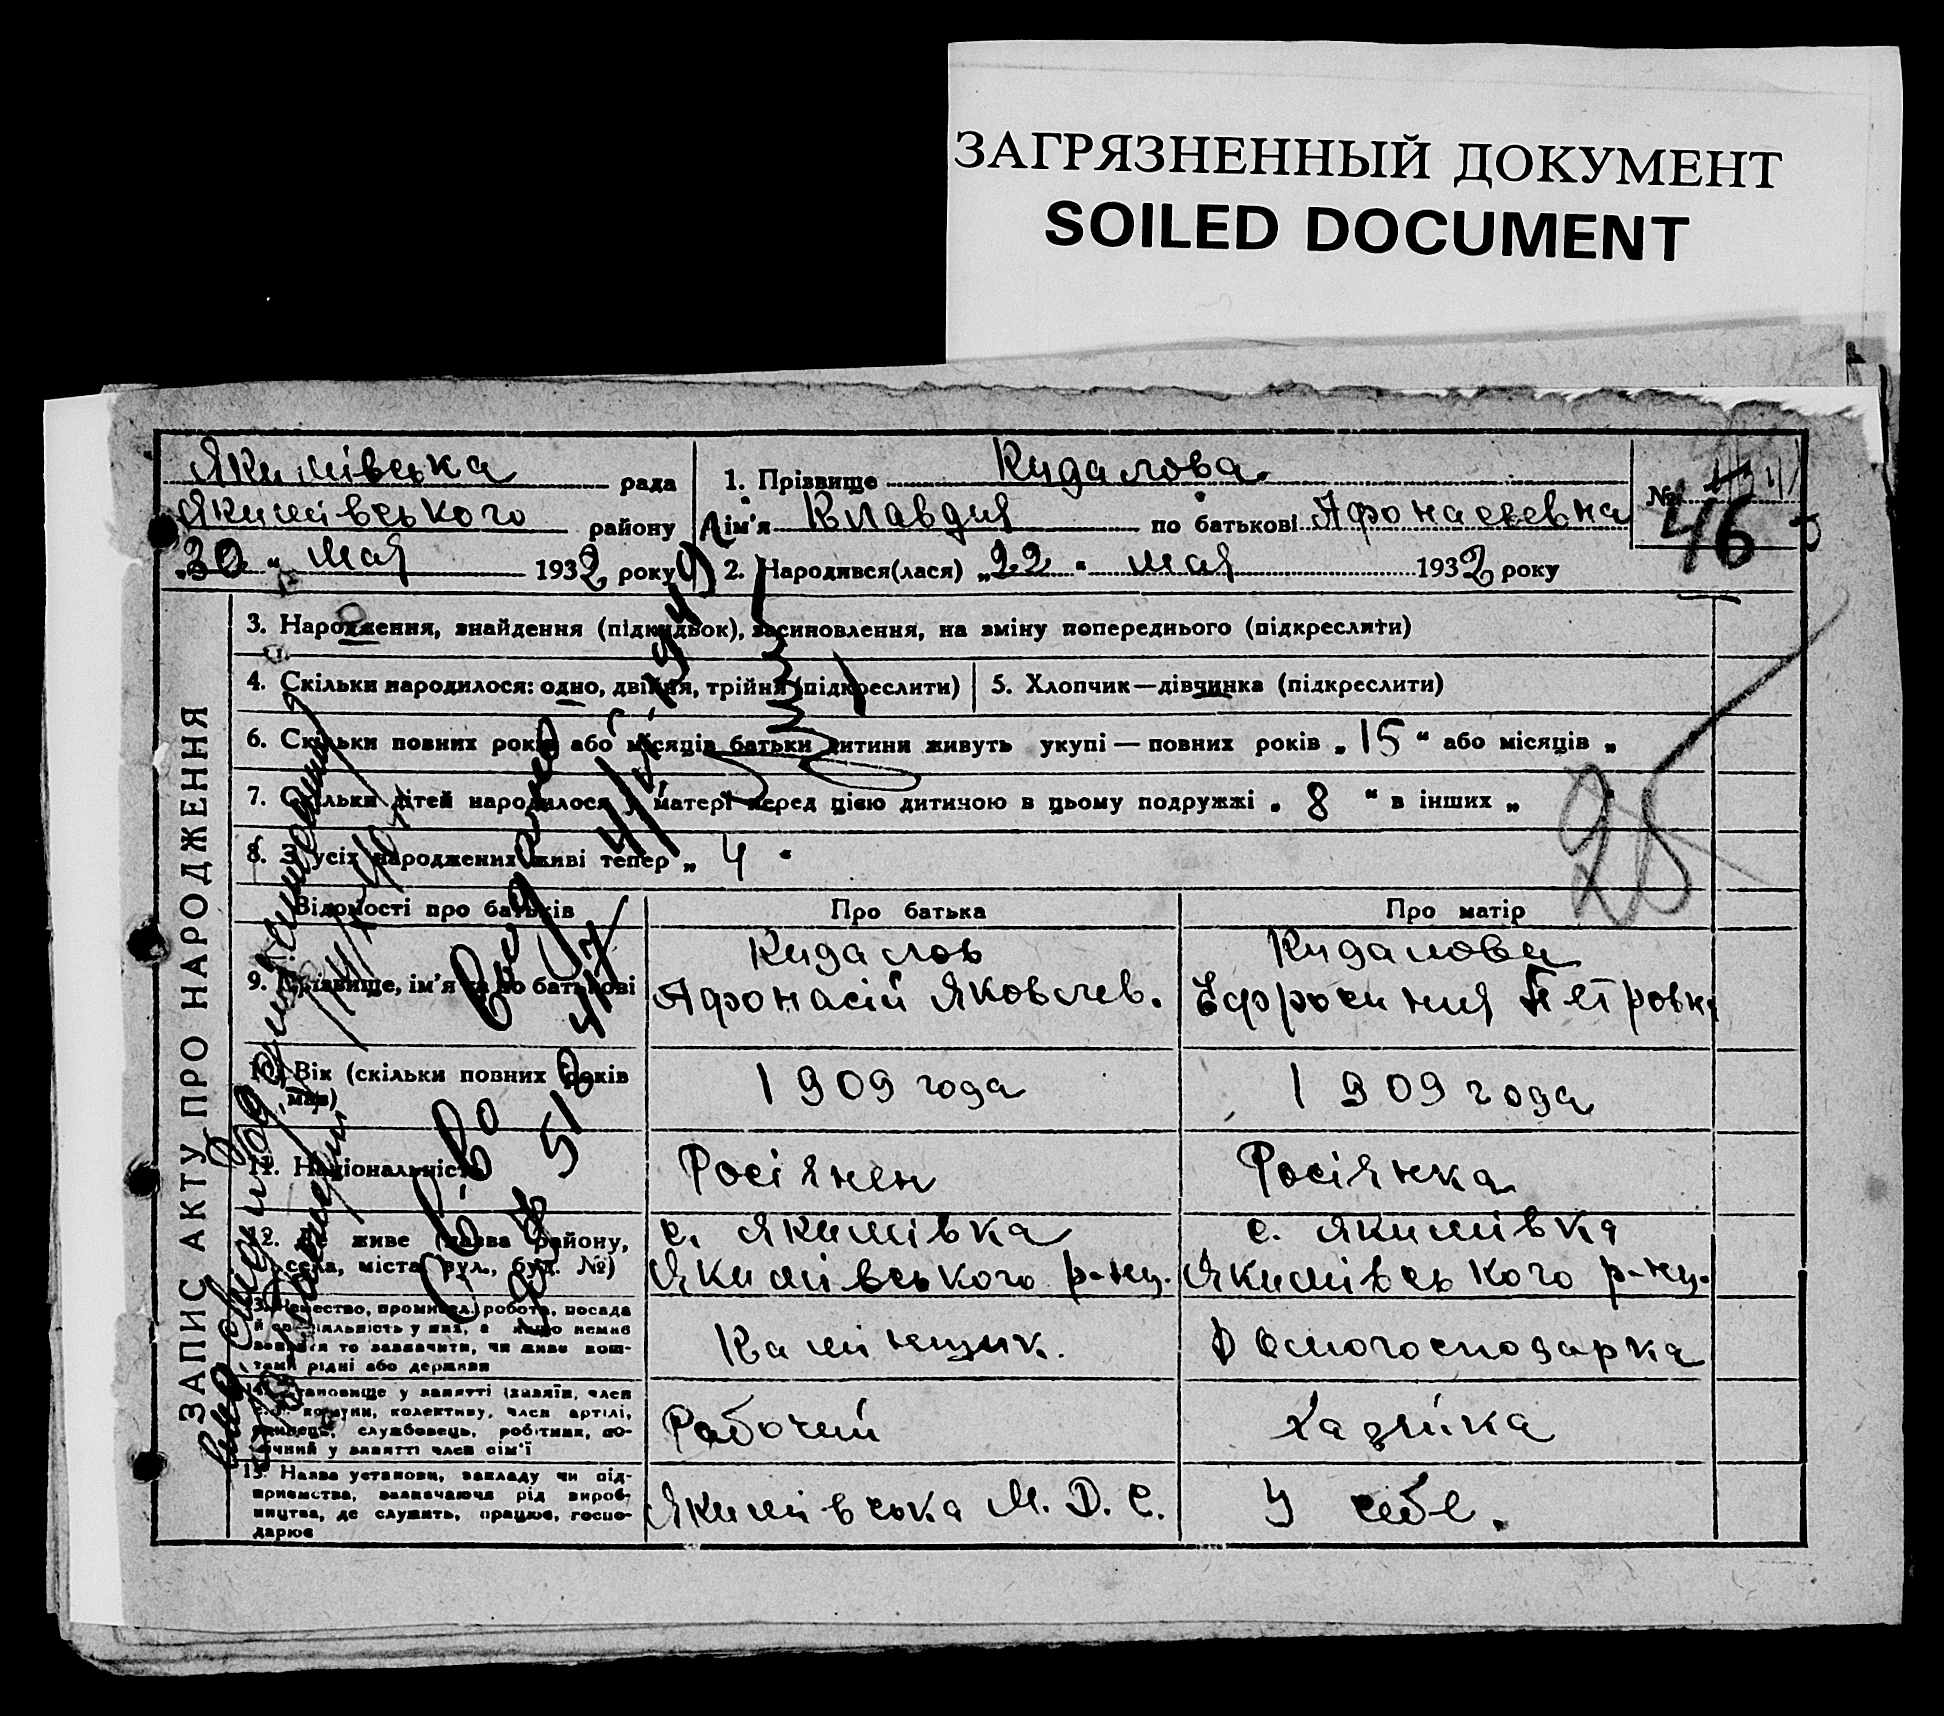 ЗАГРЯЗНЕННЫЙ ДОКУМЕНТ
SOILED DOCUMENT
Якимівська рада
Якимівського району
„30“ мая 1932 року
1. Прізвище Кидалова
ім'я Клавдия по батькові Афонасьевна
2. Народився(лася) „22“ мая 1932 року
№
46
ЗАПИС АКТУ ПРО НАРОДЖЕННЯ
3. Народження, знайдення (підкидьок), засиновлення, на зміну попереднього (підкреслити)
4. Скільки народилося: одно, двійня, трійня (підкреслити)
5. Хлопчик—дівчинка (підкреслити)
6. Скільки повних років або місяців батьки дитини живуть укупі — повних років „15“ або місяців „
7. Скільки дітей народилося у матері перед цією дитиною в цьому подружжі „8“ в інших „
8. З усіх народжених живі тепер „4“
25
Відомості про батьків
Про батька
Про матір
9. Прізвище, ім'я та по батькові
Кидалов
Афонасій Яковлев.
Кидалова
Ефросиния Петровна
10. Вік (скільки повних років має)
1909 года
1909 года
11. Національність
Росіянен
Росіянка
12. Де живе (назва району,
села, міста, вул., буд. №)
с. Якимівка
Якимівського р-ну.
с. Якимівка
Якимівського р-ну.
робота, посада
й спеціальність у них, а якщо немає
заняття то зазначити, чи живе кош-
тами рідні або держави
Каминщик.
Домогосподарка
14. Становище у занятті (хазяїн, член
комуни, колективу, член артілі,
службовець, робітник, по-
мічний у занятті член сім'ї
Рабочий
Хазяйка
15. Назва установи, закладу чи під-
приємства, зазначаючи рід вироб-
ництва, де служить, працює, госпо-
дарює
Якимівська М. Д. С.
У себе.